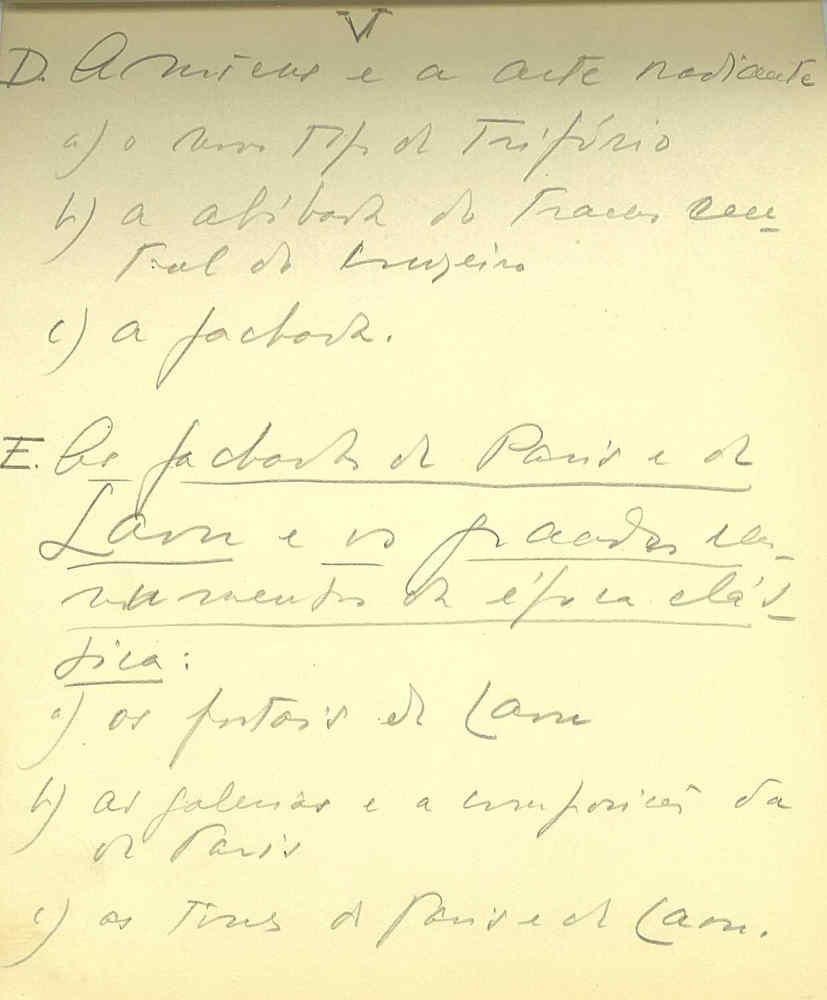 VI
D. Amiens e a arte radiante
a) o novo tipo de Trifório
b) a abóbada do Tramo cen-
tral do cruzeiro
c) a fachada.
E. As fachadas de Paris e de
Laon e os grandes
monumentos da época clás-
sica:
a) os portais de Laon
b) as galerias e a composição da
de Paris
c) as Torres de Paris e de Laon.